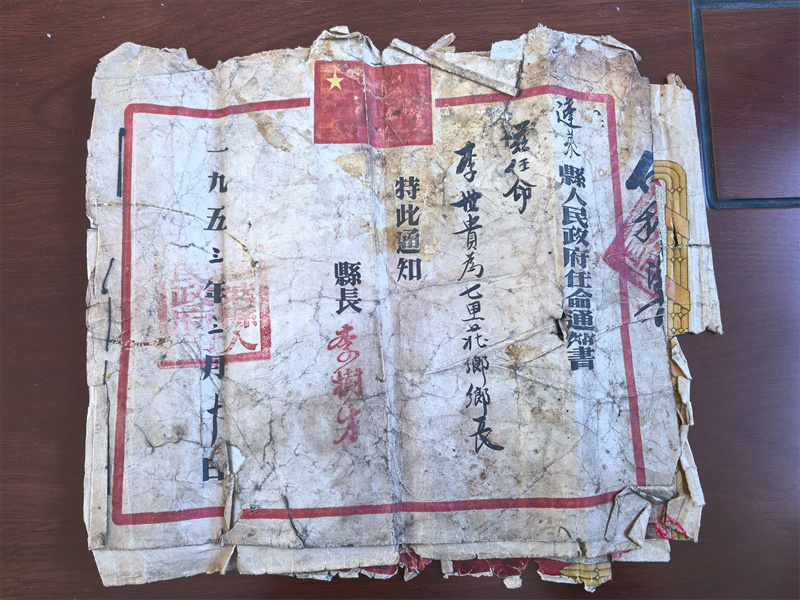 蓬萊縣人民政府任命通知書
茲任命
李世貴為七里莊鄉鄉長
特此通知
縣長 李樹生
一九五三年二月十日